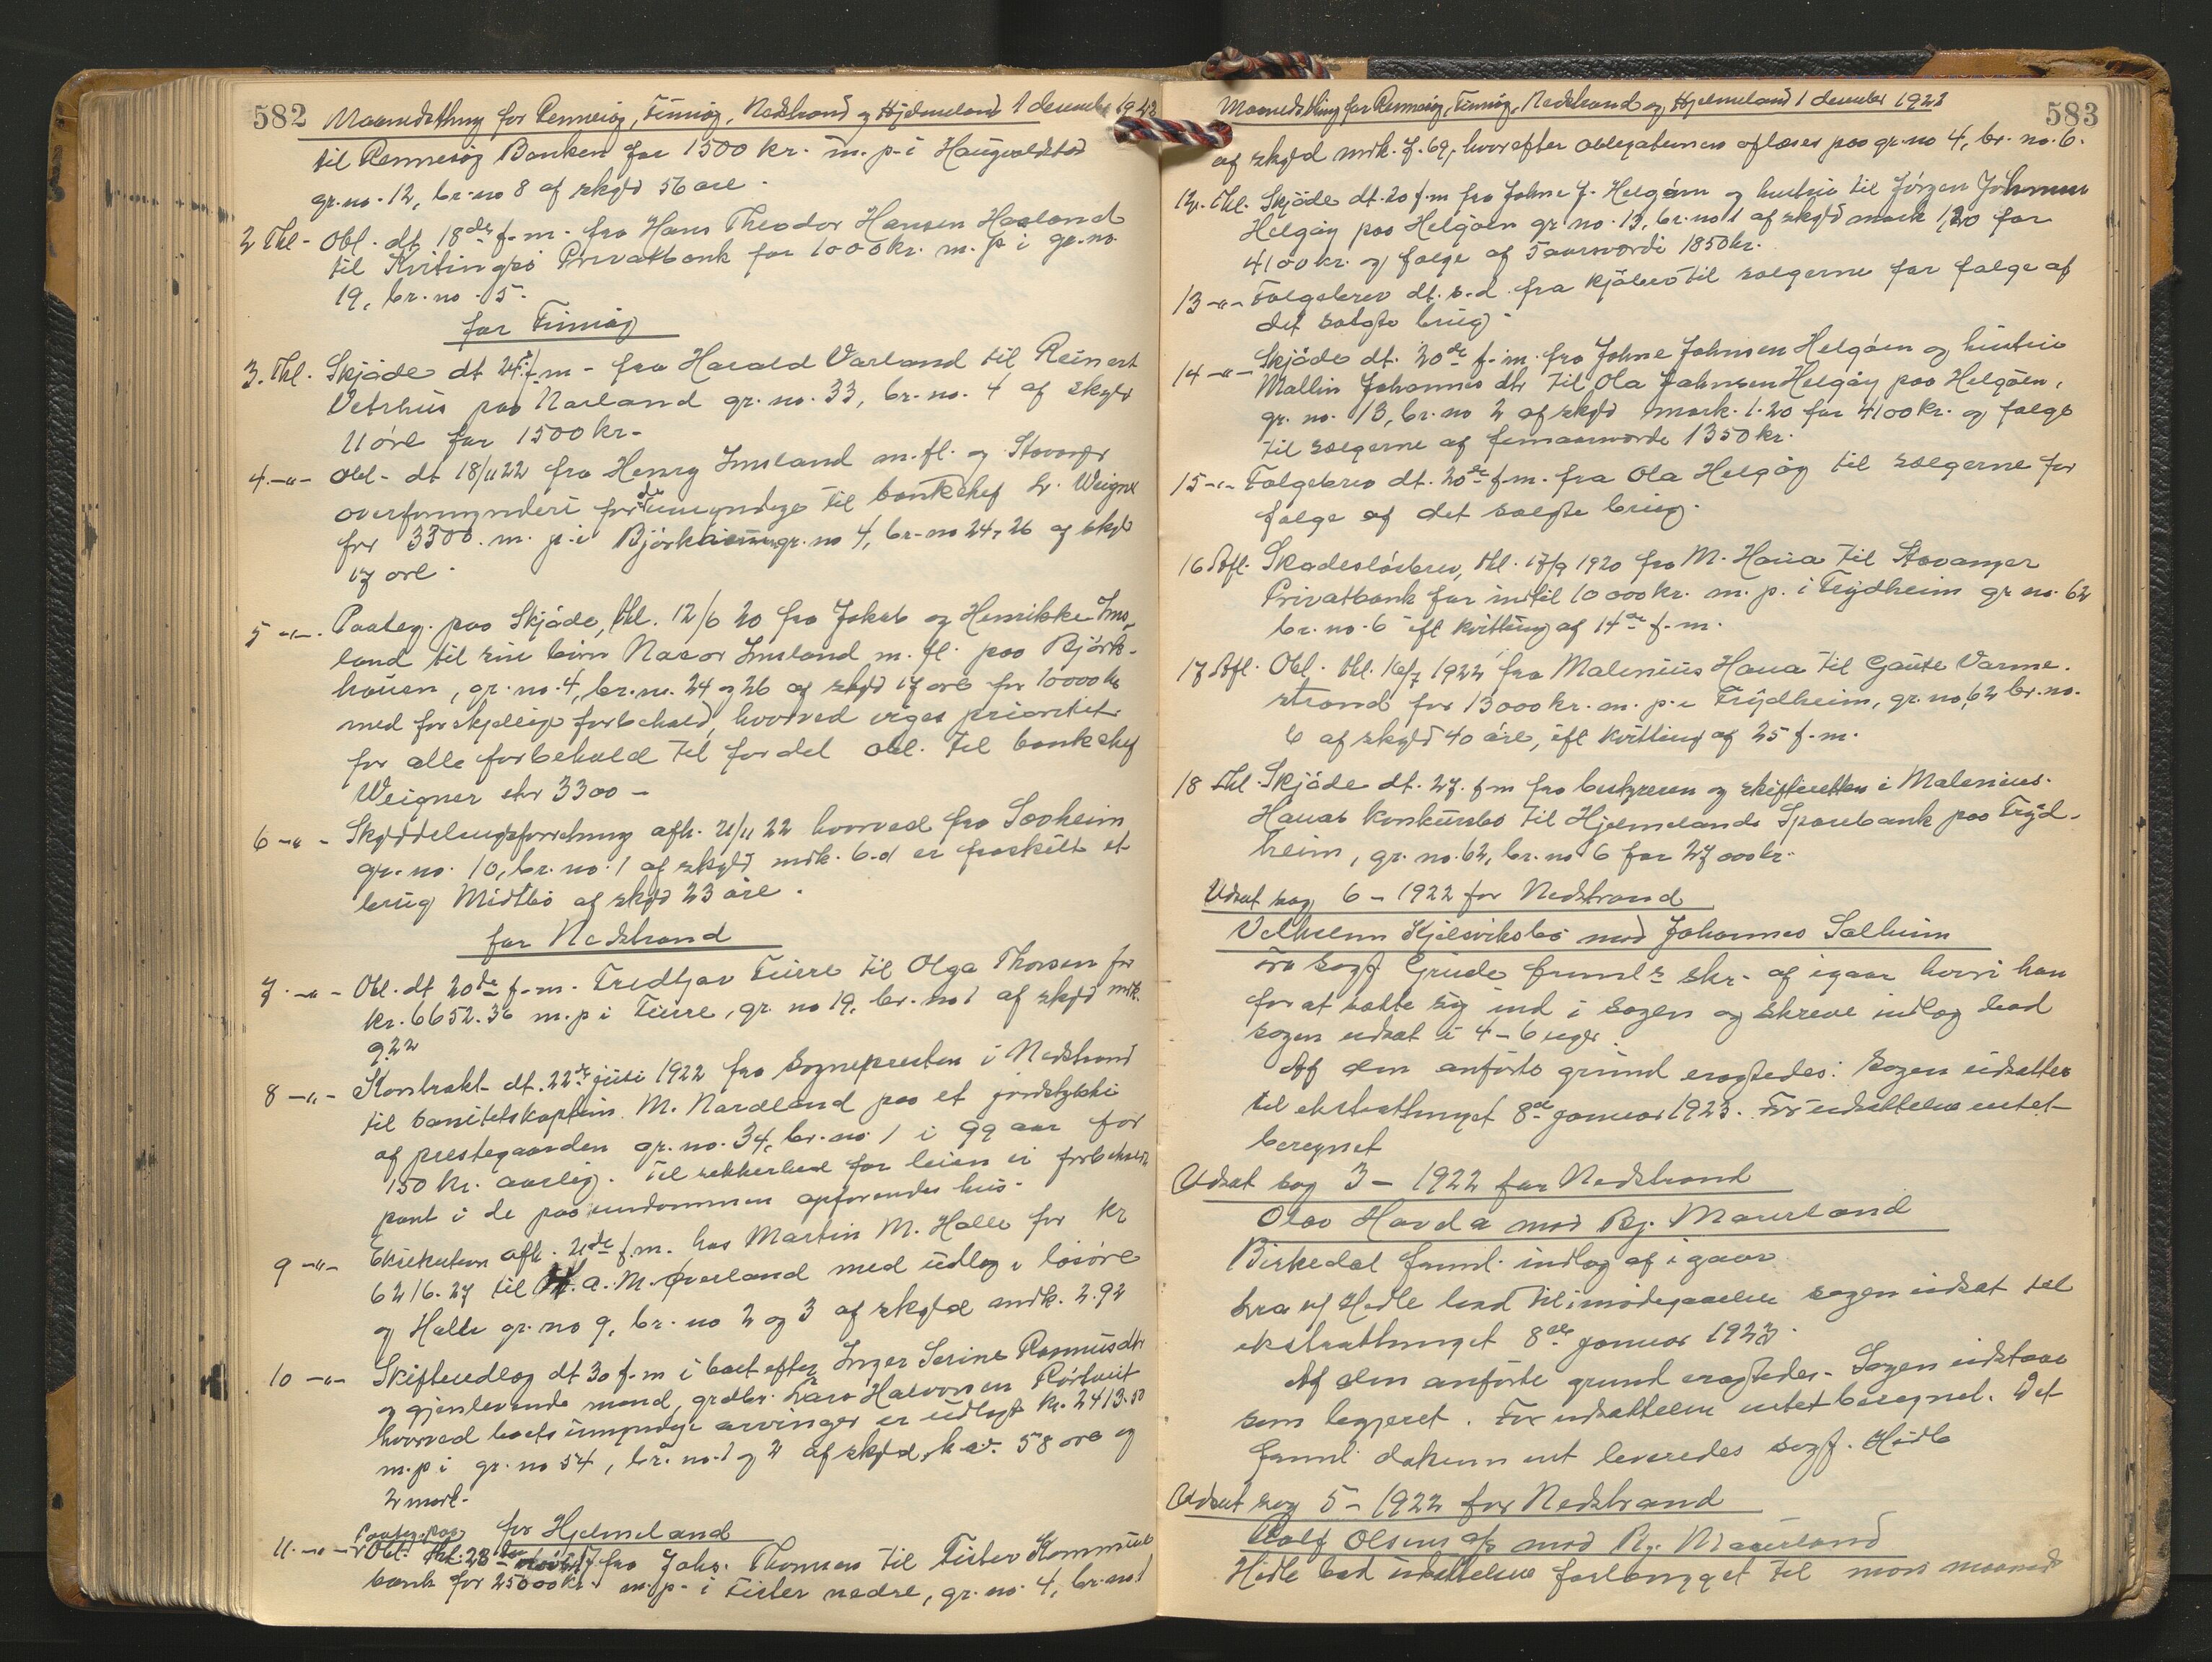 582 Maanedsthing for Rennesøy, Finnøy, Nedstrand og Hjelmeland 1 december 1922
til Rennesøy Banken for 1500 kr. m. p. i Haugvaldstad
gr. no. 12, br. no 8 af skyld 56 øre.
2 Thl. Obl. dt. 18de f. m. fra Hans Theodor Hansen Haaland
til Kvitingsø Privatbank for 1000 kr. m. p i gr. no.
19, br. no. 5.
for Finnøy
3. Thl. Skjøde dt 24. f. m. fra Harald Varland til Reinert
Vetrhus paa Narland gr. no. 33, br. no. 4 af skyld
11 øre for 1500 kr.
4 -"- Obl. dt 18/11 22 fra Henry Imsland m. fl. og Stavanger
overformynderi for de umyndige til bankchef Weigner
for 3300. m. p. i Bjørkhaugen gr. no 4, br. no 24, 26 af skyld
17 øre.
5 -"- Paateg. paa Skjøde, thl. 12/6 20 fra Jakob og Henrikke Ims-
land til sine børn Naror Imsland m. fl. paa Bjørk-
hauen, gr. no. 4, br. no. 24 og 26 af skyld 17 øre for 10000 kr
med forskjellige forbehold, hvorved viges prioritet
for alle forbehold til fordel obl. til bankchef
Weigner stor 3300 -
6 -"- Skylddelingsforretning afh. 21/11 22 hvorved fra Soøheim
gr. no. 10, br. no. 1 af skyld mrk. 6.01 er fraskilt et
brug Midtbø af skyld 23 øre.
for Nedstrand
7 -"- Obl. dt 20de f. m. Fredtjov Furre til Olga Thorsen for
kr. 6652.36 m. p i Furre, gr. no 19, br. no 1 af skyld mrk.
9.22
8 -"- Kontrakt dt. 22de juli 1922 fra Sognepresten i Nedstrand
til sanitetskaptein M. Nordland paa et jordstykke
af prestegaarden gr. no. 34, br. no. 1 i 99 aar for
150 kr. aarlig. Til sikkerhed for leien er forbeholdt
pant i de paa eiendommen opførendes hus.
9 -"- Eksekution afh. 21de f. m. hos Martin M. Halle for kr
6216.27 til A. M. Øverland med udlæg i løsøre
og Halle gr. no 9, br. no 2 og 3 af skyld mrk. 2.92
10 -"- Skifteudlæg dt 30 f. m i boet efter Inger Serine Rasmusdtr
og gjenlevende mand, grdbr. Lars Halvorsen Rørtveit
hvorved boets umyndige arvinger er udlagt kr. 2413.50
m. p i gr. no 54, br. no. 1 og 2 af skyld, h. v. 58 øre og
2 mark.
for Hjelmeland
11. -"- Paateg. paa Obl. thl. 28 fra Johs. Thomsen til Fister Kommune
bank for 25000 kr. m. p. i Fister nedre, gr. no. 4, br. no 1
Maanedsthing for Rennesøy, Finnøy, Nedstrand og Hjelmeland 1 december 1922 583
af skyld mrk. 7.69, hvorefter obligationen aflæses paa gr. no 4, br. no. 6.
12. Thl. Skjøde dt. 20 f. m fra Johne J. Helgøen og hustru til Jørgen Johnsen
Helgøy paa Helgøen gr. no. 13, br. no 1 af skyld mark 1,20 for
4100 kr. og følge af 5aarsværdi 1850 kr.
13 -"- Følgebrev dt. s. d. fra kjøber til sælgerne for følge af
det solgte brug.
14 -"- Skjøde dt. 20de f. m. fra Johne Johnsen Helgøen og hustru
Mallin Johannes dtr til Ola Johnsen Helgøy paa Helgøen,
gr. no. 13, br. no 2 af skyld mark. 1.20 for 4100 kr. og følge
til sælgerne af femaarsværdi 1350 kr.
15 -"- Følgebrev dt. 20de f. m. fra Ola Helgøy til sælgerne for
følge af det solgte brug.
16 Afl. Skadesløsbrev, thl. 17/9 1920 fra M. Haua til Stavanger
Privatbank for indtil 10 000 kr. m. p. i Frydheim gr no. 62
br. no. 6 ifl kvittering af 14de f. m.
17 Afl. Obl. thl. 16/7 1922 fra Malenius Haua til Gaute Varme-
strand for 13000 kr. m. p. i Frydheim, gr. no 62 br. no.
6 af skyld 40 øre, ifl kvittering af 25 f. m.
18 Thl. Skjøde dt. 27. f. m fra bestyreren og skifteretten i Malenius
Hauas konkursbo til Hjelmelands Sparebank paa Fryd-
heim, gr. no. 62, br. no 6 for 27 000 kr.
Udsat sag 6 - 1922 for Nedstrand
Velhelm Kjelsviks bo mod Johannes Sælheim
Fra sagf Grude freml. skr. af igaar hvori han
for at sætte sig ind i sagen og skreve indlæg bad
sagen udsat i 4-6 uger.
Af den anførte grund eragtedes: Sagen udsættes
til ekstrathinget 8de januar 1923. For udsættelsen intet
beregnet
Udsat sag 3 - 1922 for Nedstrand
Olav Havda mod Bj. Maurland
Birkedal freml. indlæg af igaar
Hidle bad til imødegaaelse sagen udsat til
ekstrathinget 8de januar 1923.
Af den anførte grund eragtedes. Sagen udstaar
som begjæret. For udsættelsen intet beregnet. Det
freml. dokument leveredes sagf. Hidle
Udsat sag 5 - 1922 for Nedstrand
Rolf Olsen a/s mod Bj. Maurland
Hidle bad udsættelsen forlænget til maaned